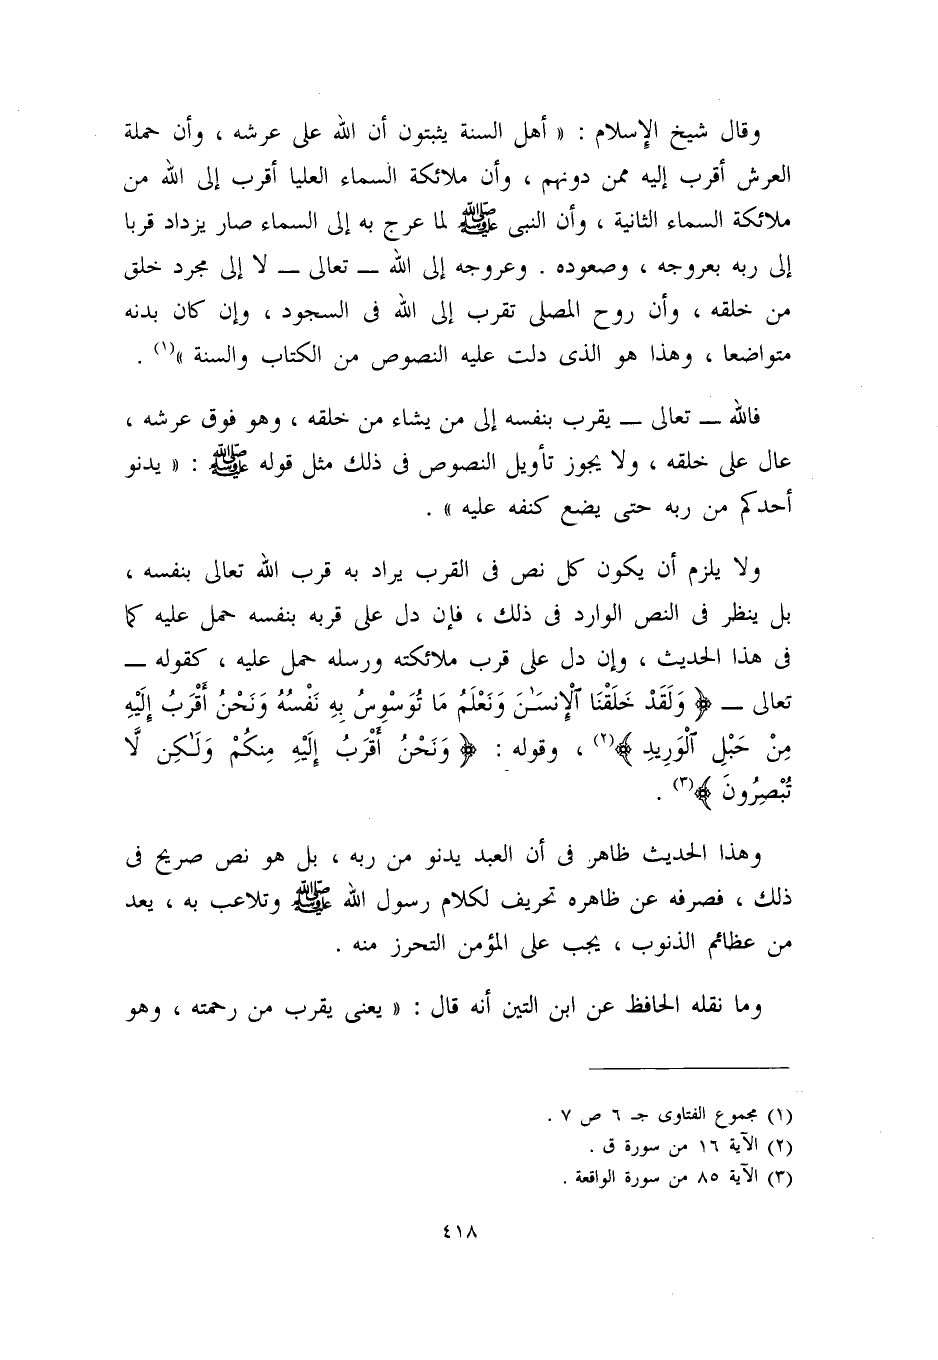 وقال شيخ الإسلام : « أهل السنة يثبتون أن الله على عرشه ، وأن حملة
العرش أقرب إليه ممن دونهم ، وأن ملائكة السماء العليا أقرب إلى الله من
ملائكة السماء الثانية ، وأن النبى ﷺ لما عرج به إلى السماء صار يزداد قربا
إلى ربه بعروجه ، وصعوده . وعروجه إلى الله ـــ تعالى ـــ لا إلى مجرد خلق
من خلقه ، وأن روح المصلى تقرب إلى الله فى السجود ، وإن كان بدنه
متواضعا ، وهذا هو الذى دلت عليه النصوص من الكتاب والسنة »(١) .
فالله ـــ تعالى ـــ يقرب بنفسه إلى من يشاء من خلقه ، وهو فوق عرشه ،
عال على خلقه ، ولا يجوز تأويل النصوص فى ذلك مثل قوله ﷺ : « يدنو
أحدكم من ربه حتى يضع كنفه عليه » .
ولا يلزم أن يكون كل نص فى القرب يراد به قرب الله تعالى بنفسه ،
بل ينظر فى النص الوارد فى ذلك ، فإن دل على قربه بنفسه حمل عليه كما
فى هذا الحديث ، وإن دل على قرب ملائكته ورسله حمل عليه ، كقوله ـــ
تعالى ـــ ﴿ وَلَقَدْ خَلَقْنَا ٱلْإِنسَـٰنَ وَنَعْلَمُ مَا تُوَسْوِسُ بِهِ نَفْسُهُ وَنَحْنُ أَقْرَبُ إِلَيْهِ
مِنْ حَبْلِ ٱلْوَرِيدِ ﴾(٢) ، وقوله : ﴿ وَنَحْنُ أَقْرَبُ إِلَيْهِ مِنكُمْ وَلَـٰكِن لَّا
تُبْصِرُونَ ﴾(٣) .
وهذا الحديث ظاهر فى أن العبد يدنو من ربه ، بل هو نص صريح فى
ذلك ، فصرفه عن ظاهره تحريف لكلام رسول الله ﷺ وتلاعب به ، يعد
من عظائم الذنوب ، يجب على المؤمن التحرز منه .
وما نقله الحافظ عن ابن التين أنه قال : « يعنى يقرب من رحمته ، وهو
(١) مجموع الفتاوى جـ ٦ ص ٧ .
(٢) الآية ١٦ من سورة ق .
(٣) الآية ٨٥ من سورة الواقعة .
٤١٨